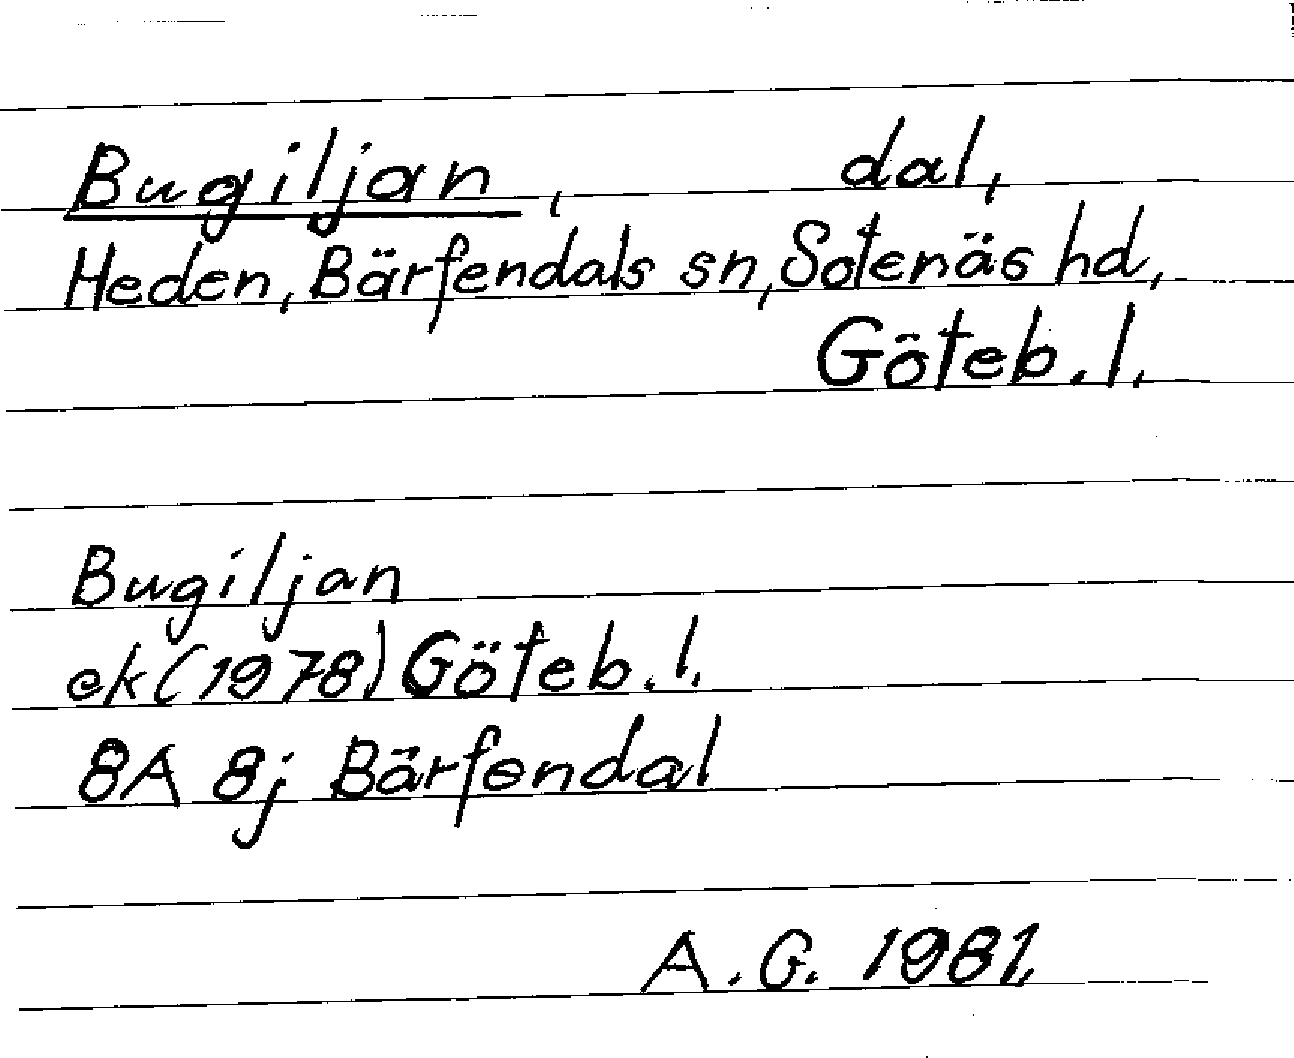 Bugiljan, dal,
Heden, Bärfendals sn, Sotenäs hd,
Göteb. l.
Bugiljan
ek (1978) Göteb. l.
8A 8j Bärfendal
A. G. 1981.